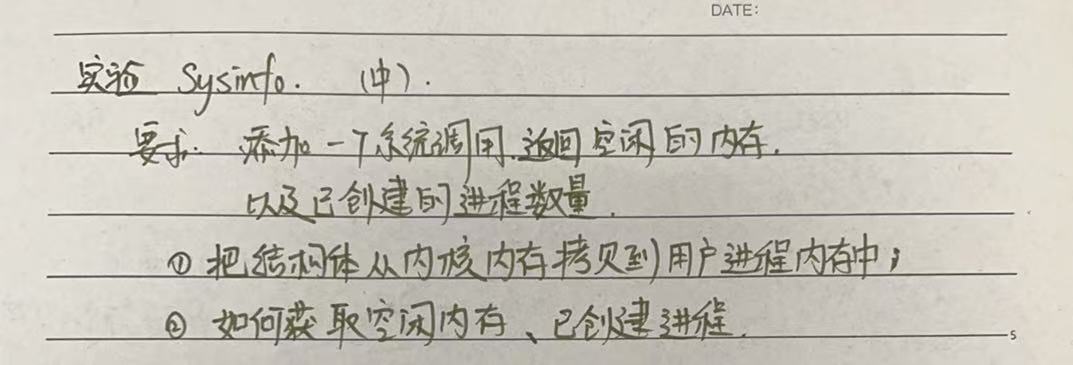 DATE:
实验 Sysinfo. (中).
要求. 添加一个系统调用.返回空闲的内存.
以及已创建的进程数量.
① 把结构体从内核内存拷贝到用户进程内存中;
② 如何获取空闲内存、已创建进程.
5